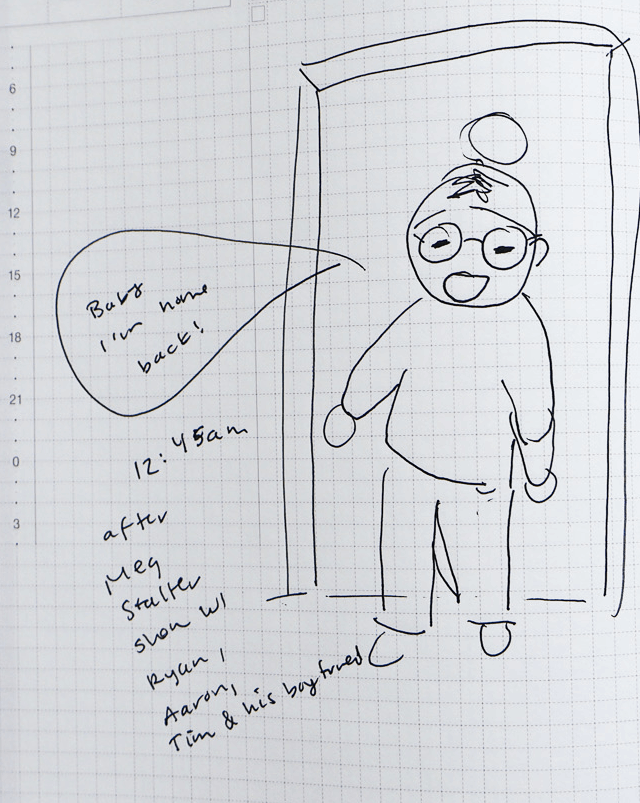 6
9
12
15
18
21
0
3
Baby
I'm home
back!
12:45am
after
Meg
Stalter
show w/
Ryan,
Aaron,
Tim & his boyfriend